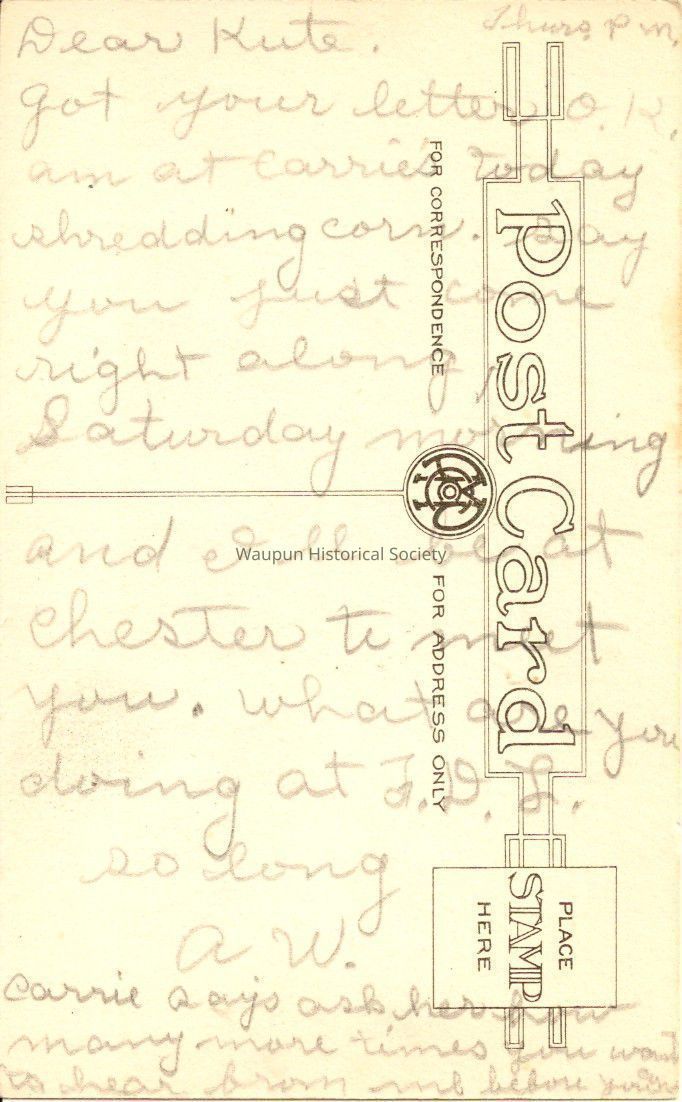 Thurs. P.M.
Dear Kute.
Got your letter O.K.
am at Carrie's today
shredding corn. Say
you just come
right along,
Saturday morning
and I'll be at
Chester to meet
you. What are you
doing at F.D.L.
so long
A W.
Carrie says ask her how
many more times you want
to hear from me before
Post Card
FOR CORRESPONDENCE
FOR ADDRESS ONLY
PLACE
STAMP
HERE
Waupun Historical Society